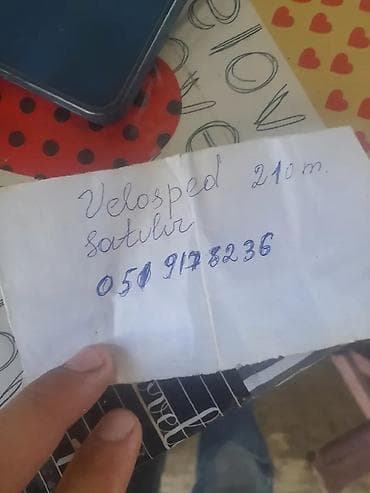 love
Velosped 210 m.
satılır
051 9178236